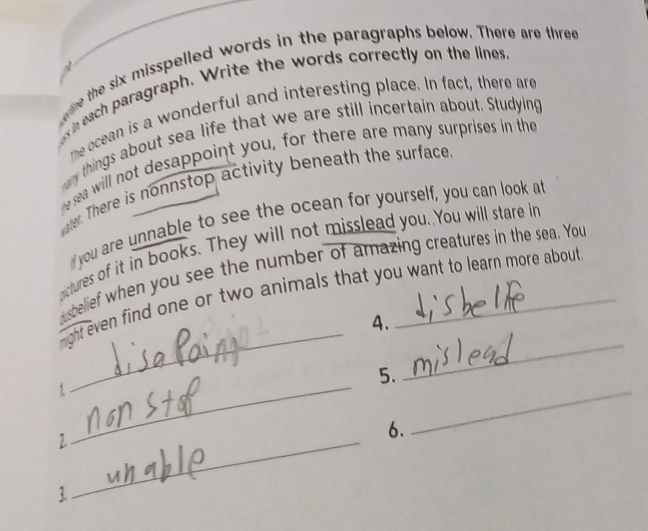 the six misspelled words in the paragraphs below. There are three
in each paragraph. Write the words correctly on the lines.
The ocean is a wonderful and interesting place. In fact, there are
many things about sea life that we are still incertain about. Studying
the sea will not desappoint you, for there are many surprises in the
water. There is nonnstop activity beneath the surface.
If you are unnable to see the ocean for yourself, you can look at
pictures of it in books. They will not misslead you. You will stare in
dusbelief when you see the number of amazing creatures in the sea. You
might even find one or two animals that you want to learn more about.
1. disapoing
2. nonstop
3. unable
4. disbelife
5. mislead
6.